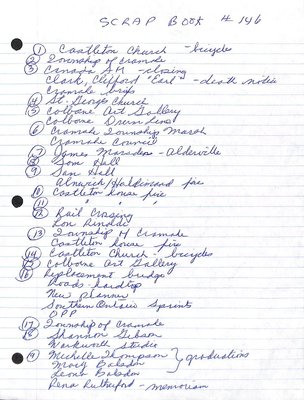 SCRAP BOOK # 146
① Castleton Church - bicycles
② Township of Cramahe
③ Canada AM - closing
Clark, Clifford "Earl" - death notice
Cramahe briefs
④ St. Georges Church
⑤ Colborne Art Gallery
Colborne Drum Line
⑥ Cramahe Township March
Cramahe Council
⑦ James Marsden - Alderville
⑧ Sam Hall
⑨ Sam Hall
Alnwick/Haldimand fire
10 Castleton house fire
11 " " "
⑫ Rail Crossing
Lon
⑬ Township of Cramahe
Castleton house fire
⑭ Castleton Church - bicycles
⑮ Colborne Art Gallery
⑯ Replacement bridge
Roads - hardtop
New planner
Southern Ontario Sprints
OPP
⑰ Township of Cramahe
⑱ Shannon Gibson
Warkworth Studio
⑲ Michelle Thompson } graduations
Macy
Leona
Rena Rutherford - memoriam